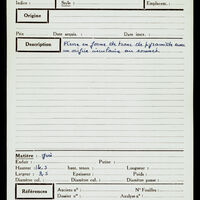 Indice : Style : Emplacem. :
Origine
Prix Date acquis. : Date inscr. :
Description Pierre en forme de tronc de pyramide avec
un orifice circulaire au sommet
Matière :
Endui : Patine :
Hauteur : haut. tenon : Longueur :
Largeur : Épaisseur : Poids :
Diamètre col. : Diamètre panse :
Références Anciens nos : No Fouilles :
Dossier no : Analyse no :